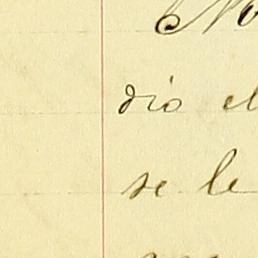 No
dio el
se le